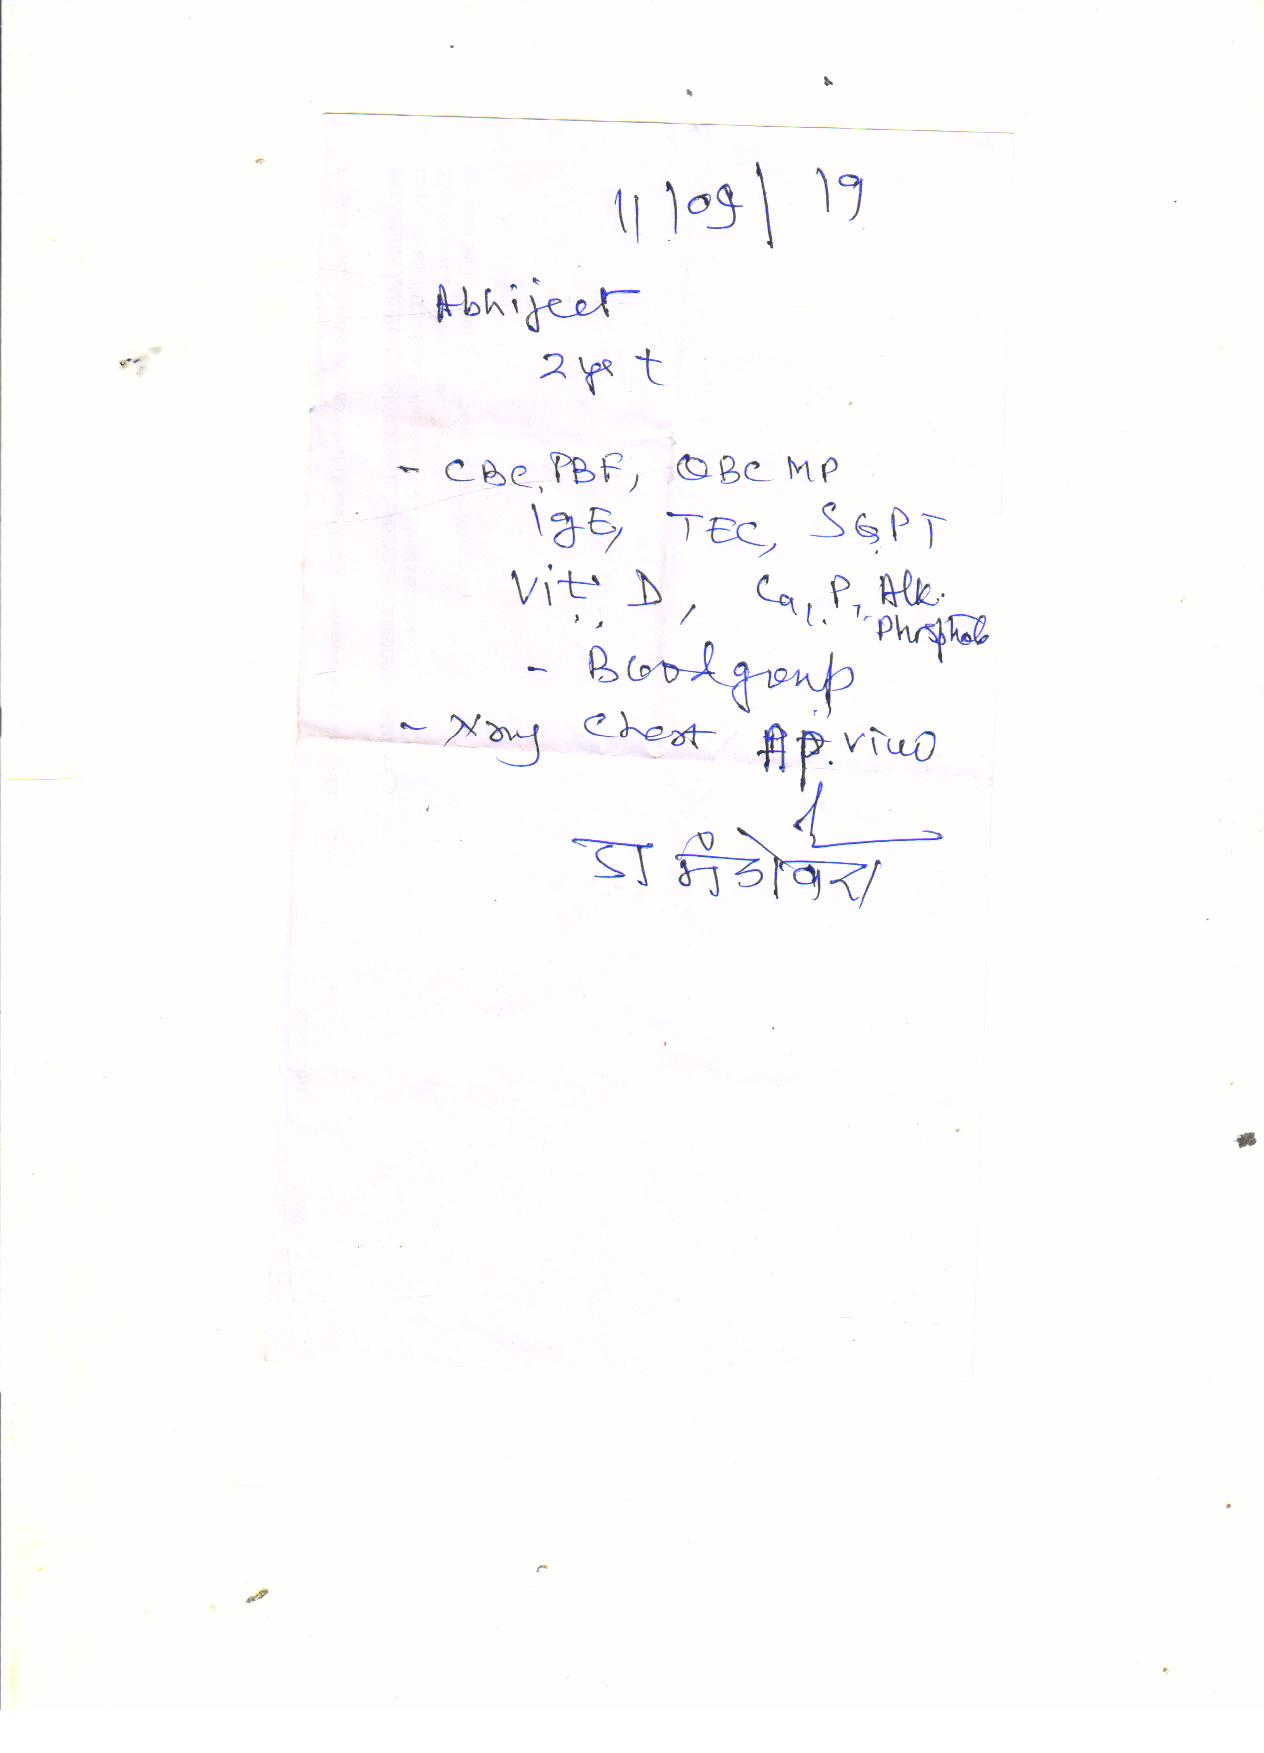 11/09/19
Abhijeet
2 yrs +
- CBC, PBF, QBC MP
IgE, TEC, SGPT
Vit D, Ca, P, Alk.
Phosphat
- Blood group
- Xray Chest AP. view
डा मंडोवरा